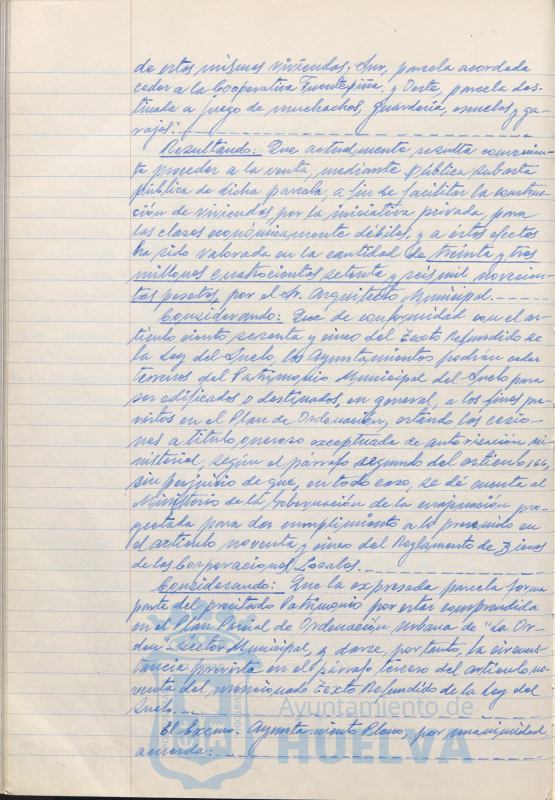 de estas mismas viviendas; Sur, parcela acordada
ceder a la Cooperativa Fuentepiña, y Oeste, parcela des-
tinada a juego de muchachos, guardería, escuelas y ga-
rajes".
Resultando: Que actualmente resulta convenien-
te proceder a la venta, mediante pública subasta
pública de dicha parcela, a fin de facilitar la construc-
ción de viviendas por la iniciativa privada, para
las clases económicamente débiles, y a estos efectos
ha sido valorada en la cantidad de treinta y tres
millones cuatrocientas setenta y seis mil novecien-
tas pesetas, por el Sr. Arquitecto Municipal.
Considerando: Que de conformidad con el ar-
tículo ciento sesenta y cinco del Texto Refundido de
la Ley del Suelo, los Ayuntamientos podrán ceder
terrenos del Patrimonio Municipal del Suelo para
ser edificados o destinados, en general, a los fines pre-
vistos en el Plan de Ordenación, estando las cesio-
nes a título oneroso exceptuada de autorización mi-
nisterial, según el párrafo segundo del artículo 166,
sin perjuicio de que, en todo caso, se dé cuenta al
Ministerio de la Gobernación de la enajenación pro-
yectada para dar cumplimiento a lo prevenido en
el artículo noventa y cinco del Reglamento de Bienes
de las Corporaciones Locales.
Considerando: Que la expresada parcela forma
parte del precitado Patrimonio por estar comprendida
en el Plan Parcial de Ordenación Urbana de "La Or-
den" Sector Municipal, y darse, por tanto, la circuns-
tancia prevista en el párrafo tercero del artículo no-
venta del mencionado Texto Refundido de la Ley del
Suelo.
El Excmo. Ayuntamiento Pleno, por unanimidad,
acuerda:
Ayuntamiento de
HUELVA